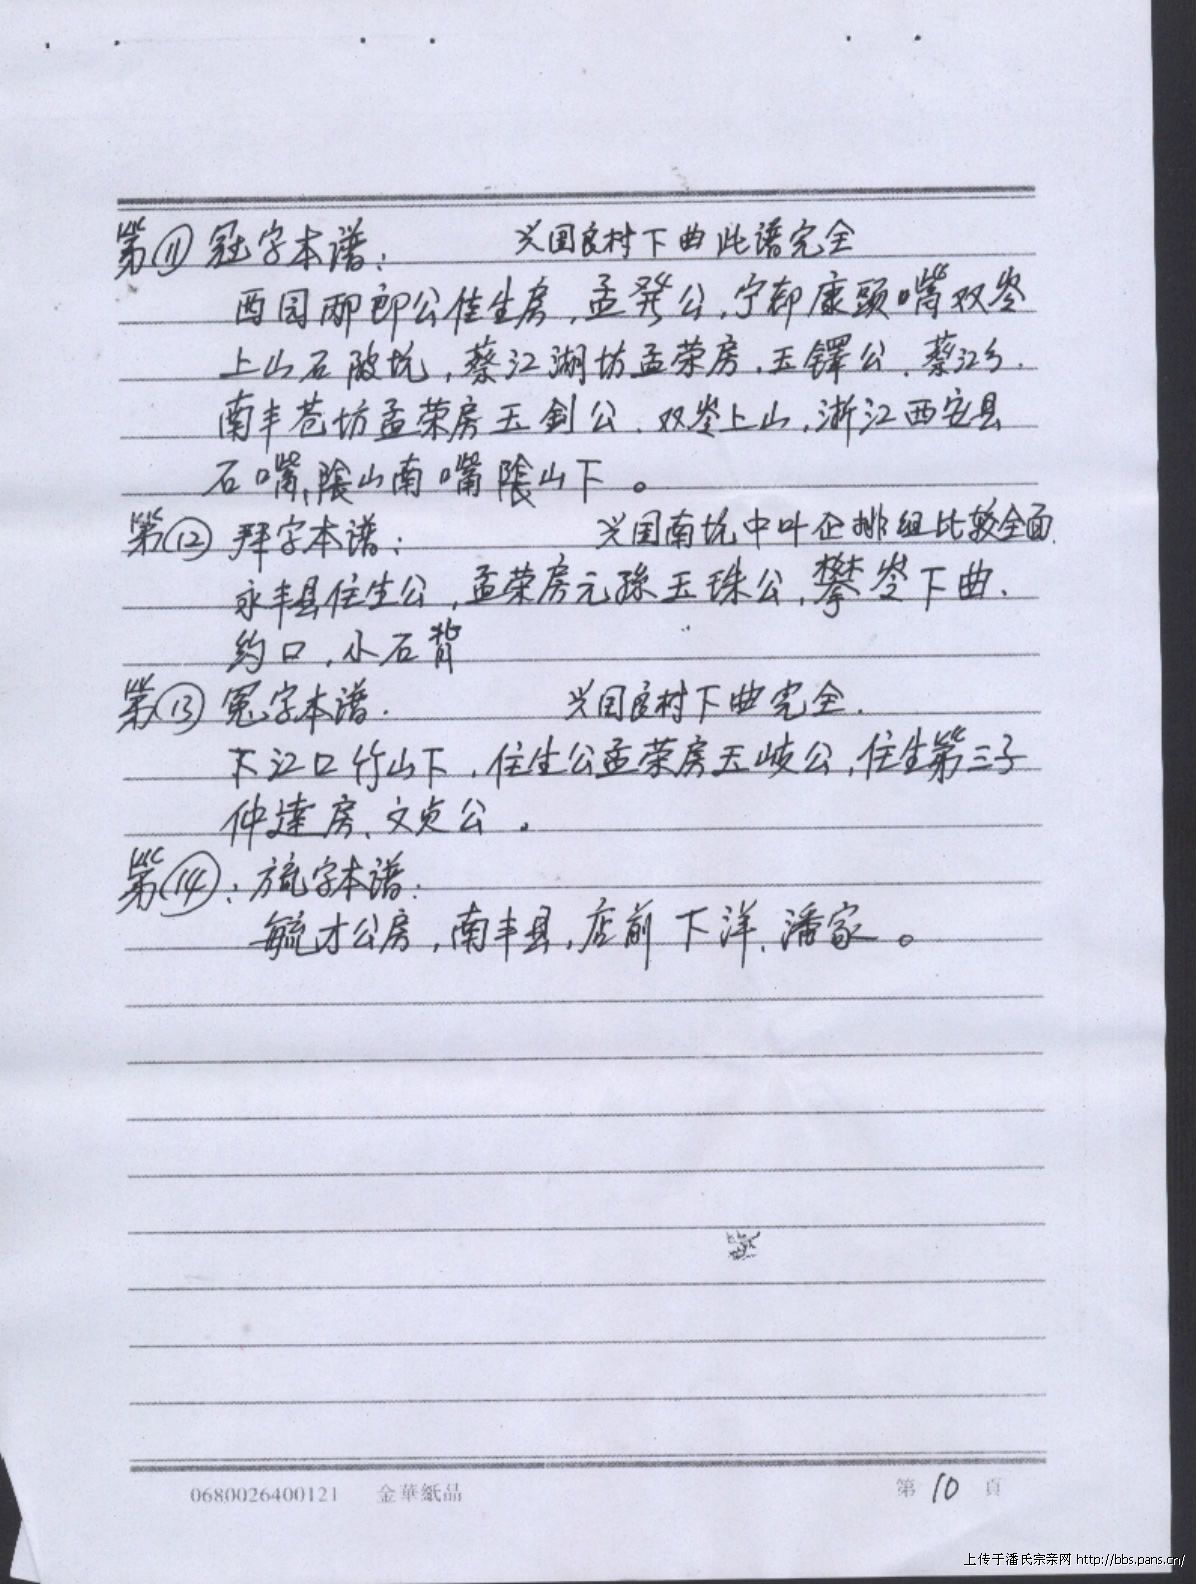 第⑪冠字本谱: 兴国良村下曲此谱完全
酉园邴郎公住生房,孟発公,宁都康頭嘴双岺
上山石陂坑,蔡江湖坊孟荣房.玉鐸公.蔡江乡.
南丰苍坊孟荣房玉釗公.双岺上山,浙江西安县
石嘴,隂山南嘴隂山下。
第⑫拜字本谱: 兴国南坑中叶企排组比较全面.
永丰县住生公,孟荣房元孫玉珠公,攀岺下曲.
约口,小石背
第⑬冕字本谱. 兴国良村下曲完全.
下江口竹山下,住生公孟荣房玉岐公,住生第三子
仲達房、文贞公。
第⑭:旒字本谱:
毓才公房,南丰县,店前下洋、潘家。
0680026400121 金華紙品 第10頁
上传于潘氏宗亲网 http://bbs.pans.cn/